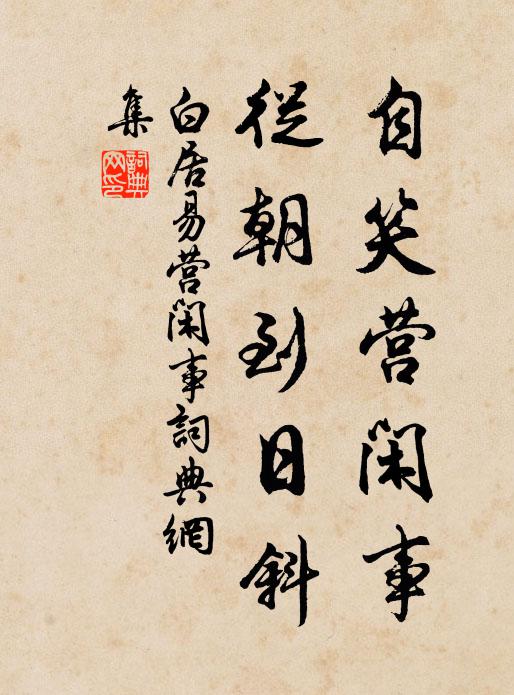 自笑营闲事
從朝到日斜
白居易营闲事詞典網
集
詞典网印